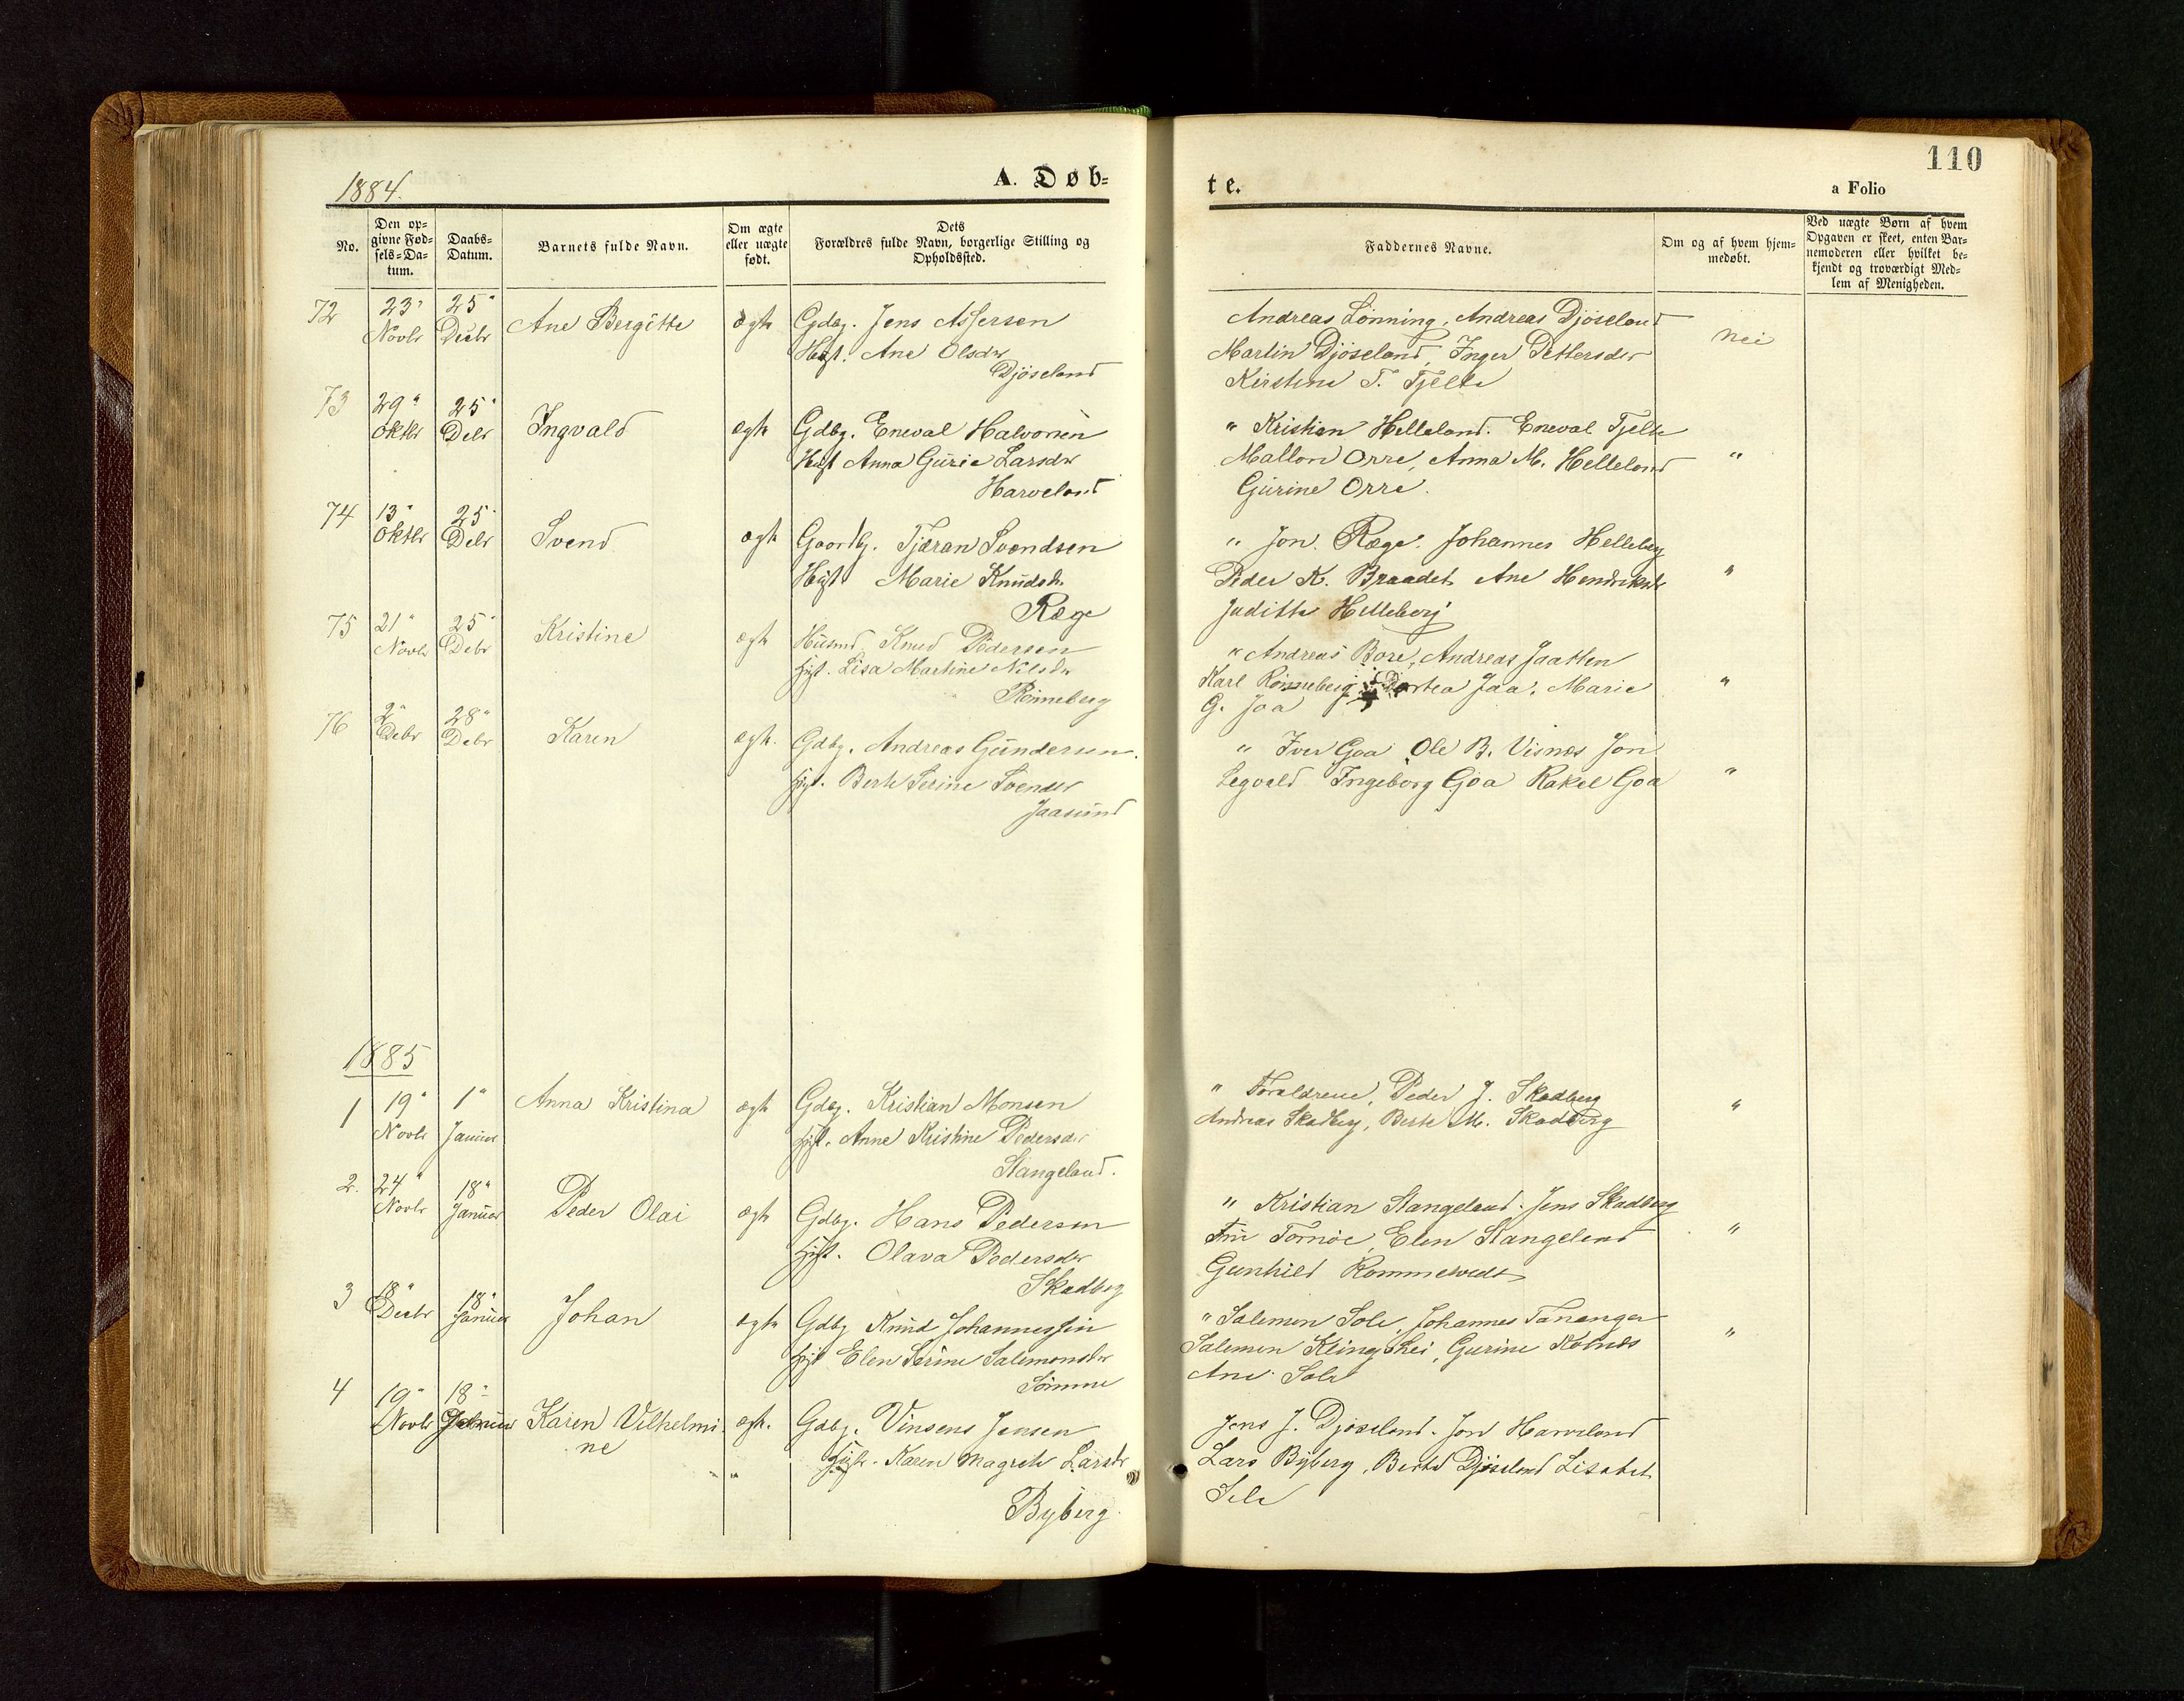 110
1884.
A. Døb=
te.
a Folio
No.
Den op=
givne Fød=
sels=Da=
tum.
Daabs=
Datum.
Barnets fulde Navn.
Om ægte
eller uægte
født.
Dets
Forældres fulde Navn, borgerlige Stilling og
Opholdssted.
Faddernes Navne.
Om og af hvem hjem=
medøbt.
Ved uægte Børn af hvem
Opgaven er skeet, enten Bar=
nemoderen eller hvilket be=
kjendt og troværdigt Med=
lem af Menigheden.
72
23"
Novbr
25"
Decbr
Ane Bergitte
ægte
Gdbg. Jens Assersen
Hust. Ane Olsdr
Djöseland
Andreas Lönning, Andreas Djöseland
Martin Djöseland, Inger Pettersdr
Kirstine T. Tjelte
Nei
73
29"
Oktbr
25"
Debr
Ingvald
ægte
Gdbg. Eneval Halvorsen
Hust Anna Gurie Larsdr
Harveland
" Kristian Helleland. Eneval Tjelte
Mallon Orre, Anna M. Helleland
Gurine Orre.
"
74
13"
Oktbr
25"
Debr
Svend
ægte
Gaardbg. Tjæran Svendsen
Hust Marie Knudsdr.
Ræge
" Jon. Ræge. Johannes Helleberg
Peder K. Braadet Ane Hendriksdr
Judithe Helleberg
"
75
21"
Novbr
25"
Debr
Kristine
ægte
Husmd Knud Pedersen
Hust. Lisa Martine Nilsdr
Rönneberg
" Andreas Bore, Andreas Jaatten
Karl Rönneberg Dortea Jaa, Marie
G. Joa
"
76
2"
Debr
28"
Debr
Karen
ægte.
Gdbg. Andreas Gundersen.
Hust. Berte Serine Svendsdr
Jaasund
" Iver Goa Ole B. Visnæs Jon
Legvald Ingeborg Goa Rakel Goa
"
1885
1
19"
Novbr
1"
Januar
Anna Kristina
ægte
Gdbg. Kristian Monsen
Hust. Anne Kristine Pedersdr
Stangeland.
" Forældrene, Peder J. Skadberg
Andreas Skadberg, Berte M. Skadberg
"
2.
24"
Novbr
18"
Januar
Peder Olai
ægte
Gdbg. Hans Pedersen
Hust. Olava Pedersdr
Skadberg
" Kristian Stangeland. Jens Skadberg
Tornöe, Elen Stangeland
Gunhild Rommetvedt
"
3
18"
Decbr
18"
Januar
Johan
ægte
Gdbg Knud Johannessen
Hust Elen Serine Salemonsdr
Sömme
" Salemon Sole, Johannes Tananger
Salemon Klingshei, Gurine Kolnæs
Ane Sole
"
4
19"
Novbr
18"
Januar
Karen Vilhelmi
ne
ægte.
Gdbg. Vinsens Jensen
Hust. Karen Magrete Larsdr
Byberg
Jens J. Djöseland. Jon Harveland
Lars Byberg, Berte Djöseland Lisabet
Sele